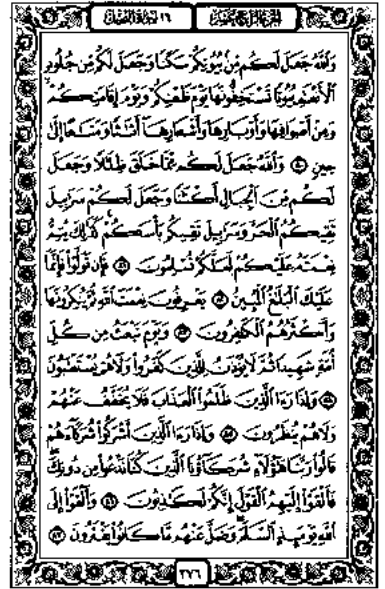 وَٱللَّهُ جَعَلَ لَكُم مِّنۢ بُيُوتِكُمْ سَكَنًا وَجَعَلَ لَكُم مِّن جُلُودِ
ٱلْأَنْعَٰمِ بُيُوتًا تَسْتَخِفُّونَهَا يَوْمَ ظَعْنِكُمْ وَيَوْمَ إِقَامَتِكُمْ
وَمِنْ أَصْوَافِهَا وَأَوْبَارِهَا وَأَشْعَارِهَآ أَثَٰثًا وَمَتَٰعًا إِلَىٰ
حِينٍ ٨٠ وَٱللَّهُ جَعَلَ لَكُم مِّمَّا خَلَقَ ظِلَٰلًا وَجَعَلَ
لَكُم مِّنَ ٱلْجِبَالِ أَكْنَٰنًا وَجَعَلَ لَكُمْ سَرَٰبِيلَ
تَقِيكُمُ ٱلْحَرَّ وَسَرَٰبِيلَ تَقِيكُم بَأْسَكُمْ كَذَٰلِكَ يُتِمُّ
نِعْمَتَهُۥ عَلَيْكُمْ لَعَلَّكُمْ تُسْلِمُونَ ٨١ فَإِن تَوَلَّوْا۟ فَإِنَّمَا
عَلَيْكَ ٱلْبَلَٰغُ ٱلْمُبِينُ ٨٢ يَعْرِفُونَ نِعْمَتَ ٱللَّهِ ثُمَّ يُنكِرُونَهَا
وَأَكْثَرُهُمُ ٱلْكَٰفِرُونَ ٨٣ وَيَوْمَ نَبْعَثُ مِن كُلِّ
أُمَّةٍ شَهِيدًا ثُمَّ لَا يُؤْذَنُ لِلَّذِينَ كَفَرُوا۟ وَلَا هُمْ يُسْتَعْتَبُونَ
٨٤ وَإِذَا رَءَا ٱلَّذِينَ ظَلَمُوا۟ ٱلْعَذَابَ فَلَا يُخَفَّفُ عَنْهُمْ
وَلَا هُمْ يُنظَرُونَ ٨٥ وَإِذَا رَءَا ٱلَّذِينَ أَشْرَكُوا۟ شُرَكَآءَهُمْ
قَالُوا۟ رَبَّنَا هَٰٓؤُلَآءِ شُرَكَآؤُنَا ٱلَّذِينَ كُنَّا نَدْعُوا۟ مِن دُونِكَ
فَأَلْقَوْا۟ إِلَيْهِمُ ٱلْقَوْلَ إِنَّكُمْ لَكَٰذِبُونَ ٨٦ وَأَلْقَوْا۟ إِلَى
ٱللَّهِ يَوْمَئِذٍ ٱلسَّلَمَ وَضَلَّ عَنْهُم مَّا كَانُوا۟ يَفْتَرُونَ ٨٧
٢٧٦